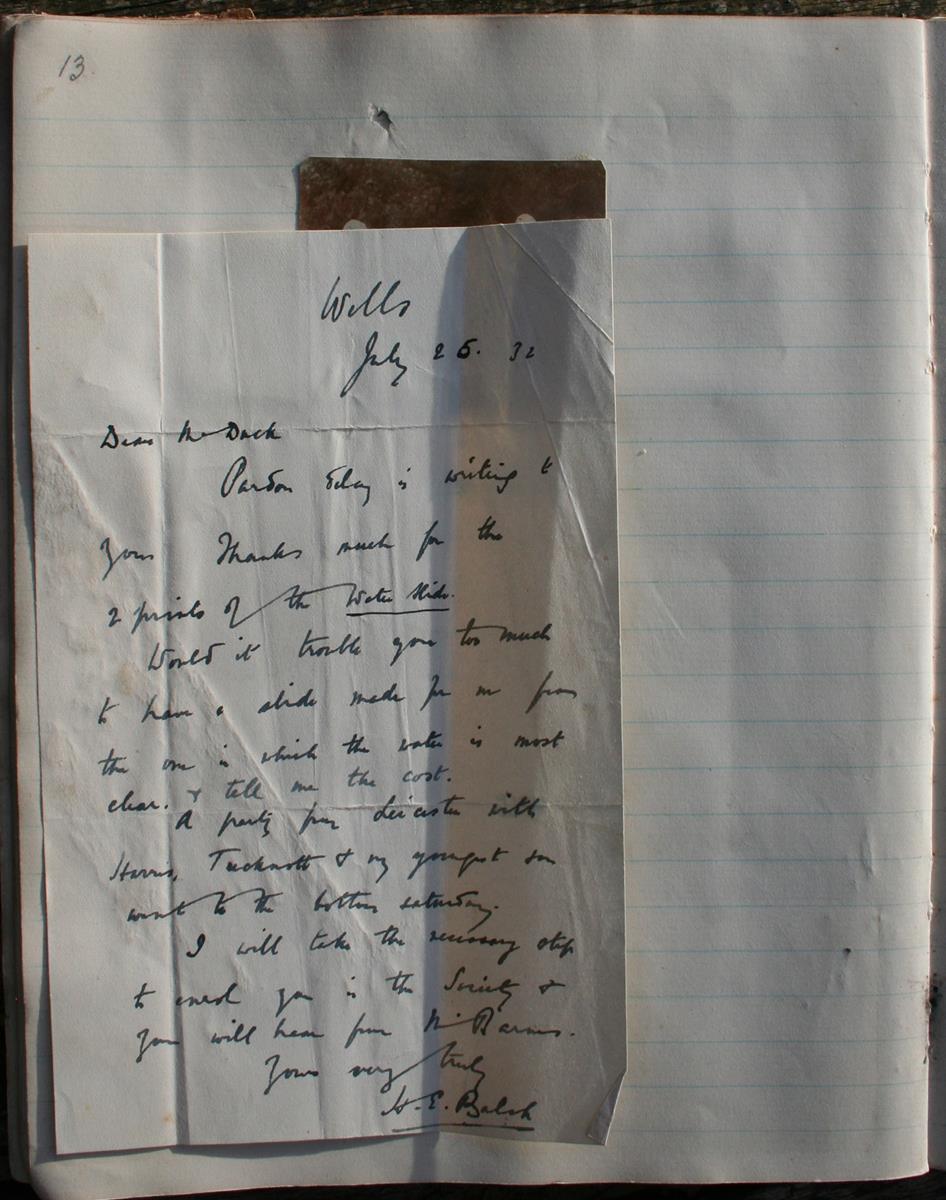 13
Wells
July 25. 32
Dear Mr Duck
Pardon delay in writing to
you Thanks much for the
2 prints of the Water Slide.
Would it trouble you too much
to have a slide made for me from
the one in which the water is most
clear. & tell me the cost.
A party from Leicester with
Harris, Tucknott & my youngest son
went to the bottom saturday.
I will take the necessary step
to enrol you in the Society &
you will hear from Mr Barnes.
Yours very truly
H. E. Balch